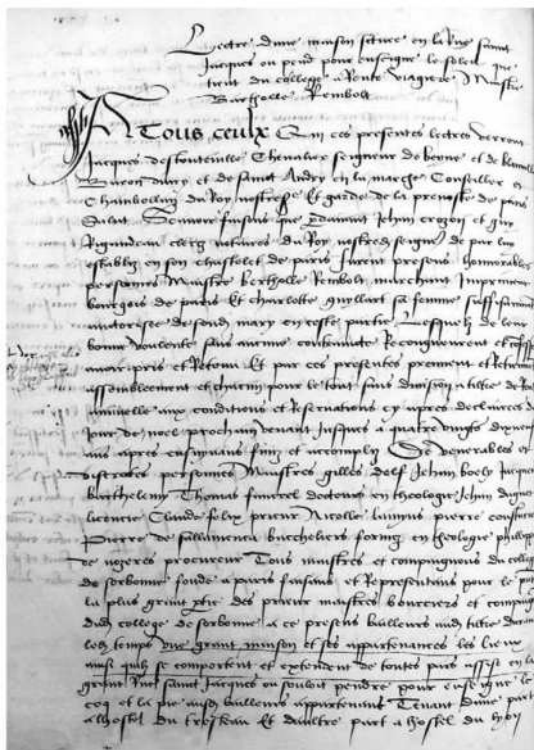 Lectre dune maison scituee en la rue saint
Jacques ou pend pour enseigne le soleil que
tient du college a Rente viagere Maistre
Bertholle Rembolt
A Tous ceulx Qui ces presentes lectres verront
Jacques destouteville Chevalier seigneur de beyne et de blainville
Baron divry et de sainct Andry en la marche Conseiller et
Chambellan du Roy nostre sire Et garde de la prevoste de paris
Salut Savoir faisons que pardevant Jehan crozon et guy
Rigaudeau clercs notaires du Roy nostred seigneur de par luy
establiz en son chastelet de paris furent presens honnorables
personnes Maistre bertholle Rembolt marchant Imprimeur
bourgois de paris Et charlotte guyllart sa femme suffisamment
auctorisee de sond mary en ceste partie Lesquelz de leur
bonne voulente sans aucune contraincte Recongneurent et confess
avoir pris et Retenu Et par ces presentes prennent et Retiennent
assemblement et chacun pour le tout sans division a tiltre de
annuelle aux conditions et Reservations cy apres declairees du
Jour de noel prochain venant Jusques a quatre vingts dix neuf
ans apres ensuyvans finiz et accompliz De venerables et
discretes personnes Maistres gilles delf Jehan boely Jacques
barthelemy Thomas docteurs en theologie Jehan
licencie Claude felix prieur Nicolle pierre
Pierre de bacheliers formez en theologie philippe
de procureur Tous maistres et compaignons du college
de sorbonne fonde a paris faisans et Representans pour le
la plus grant partie des prieur maistres boursiers et compaig
dud college de sorbonne a ce presens bailleurs aud tiltre durant
led temps une grant maison et ses appartenances les lieux
ainsi quilz se comportent et extendent de toutes pars assise en la
grant Rue saint Jacques ou souloit pendre pour enseigne le
coq et la pie ausd bailleurs appartenant Tenant dune part
a lhostel du Et daultre part a lhostel du